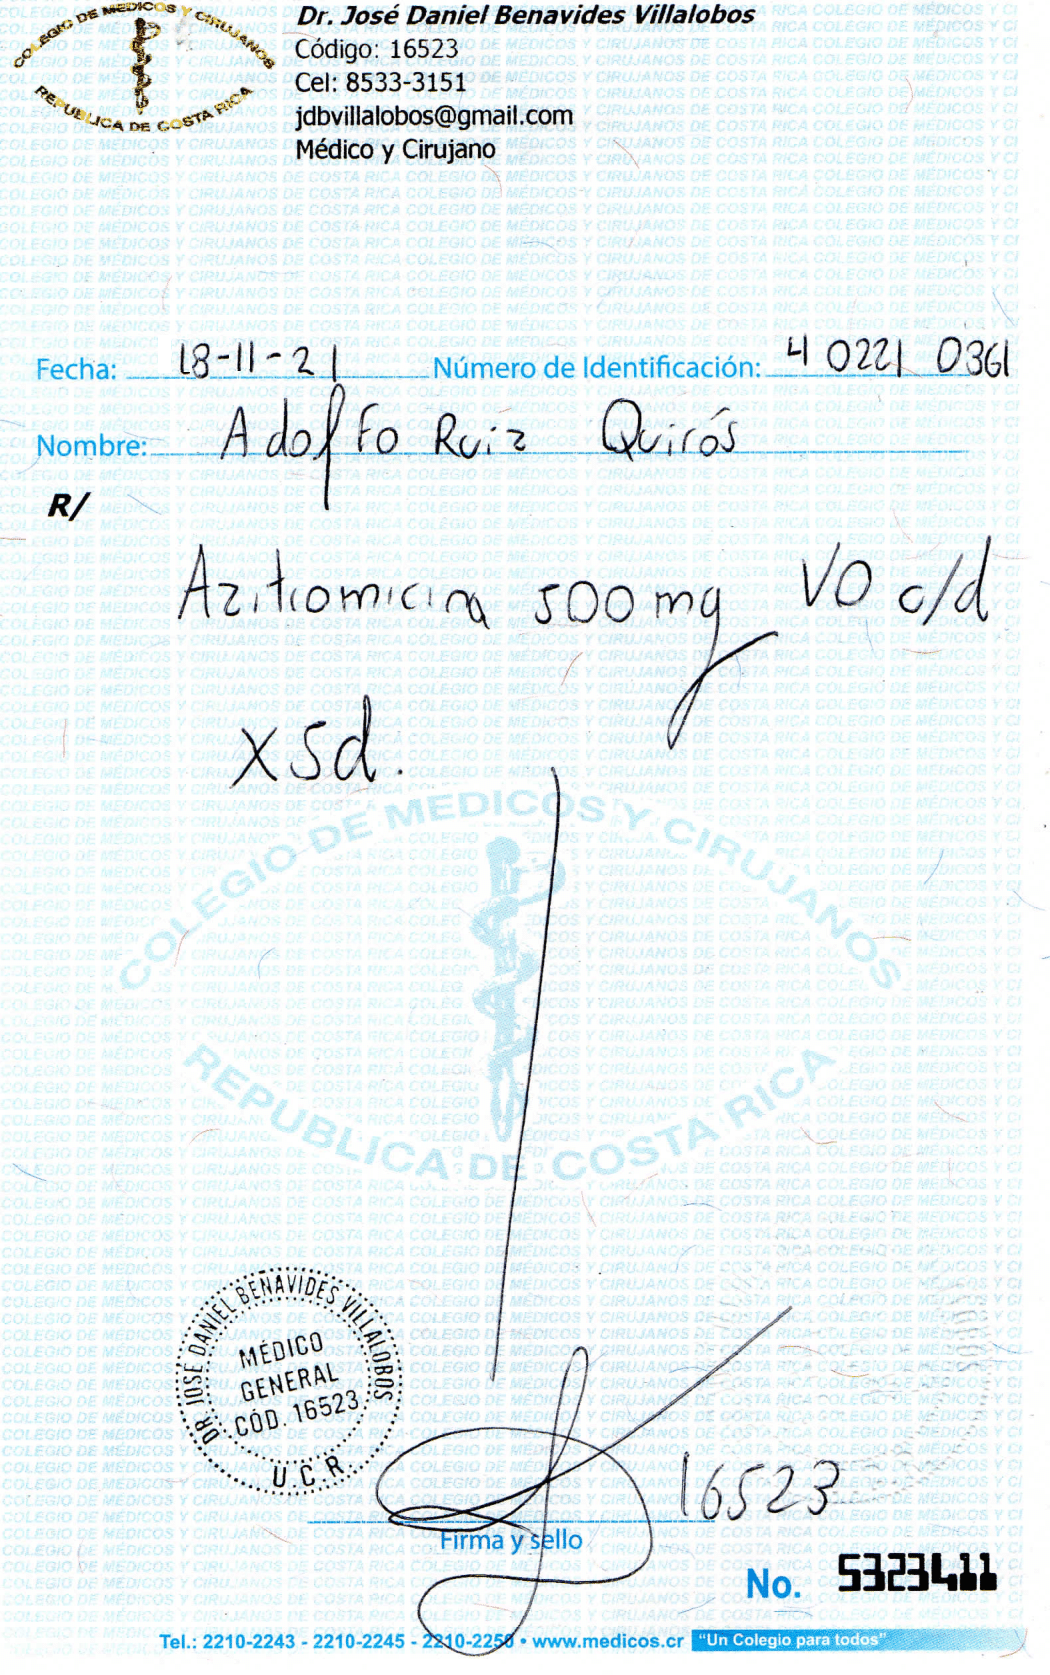 COLEGIO DE MEDICOS Y CIRUJANOS
REPUBLICA DE COSTA RICA
Dr. José Daniel Benavides Villalobos
Código: 16523
Cel: 8533-3151
jdbvillalobos@gmail.com
Médico y Cirujano
Fecha: 18-11-21 Número de Identificación: 4 0221 0361
Nombre: Adolfo Ruiz Quirós
R/
Azitromicina 500 mg VO c/d
x 5d.
COLEGIO DE MEDICOS Y CIRUJANOS
REPUBLICA DE COSTA RICA
DR. JOSE DANIEL BENAVIDES VILLALOBOS
MÉDICO
GENERAL
CÓD. 16523
U.C.R.
16523
Firma y sello
No. 5323411
Tel.: 2210-2243 - 2210-2245 - 2210-2250 • www.medicos.cr "Un Colegio para todos"